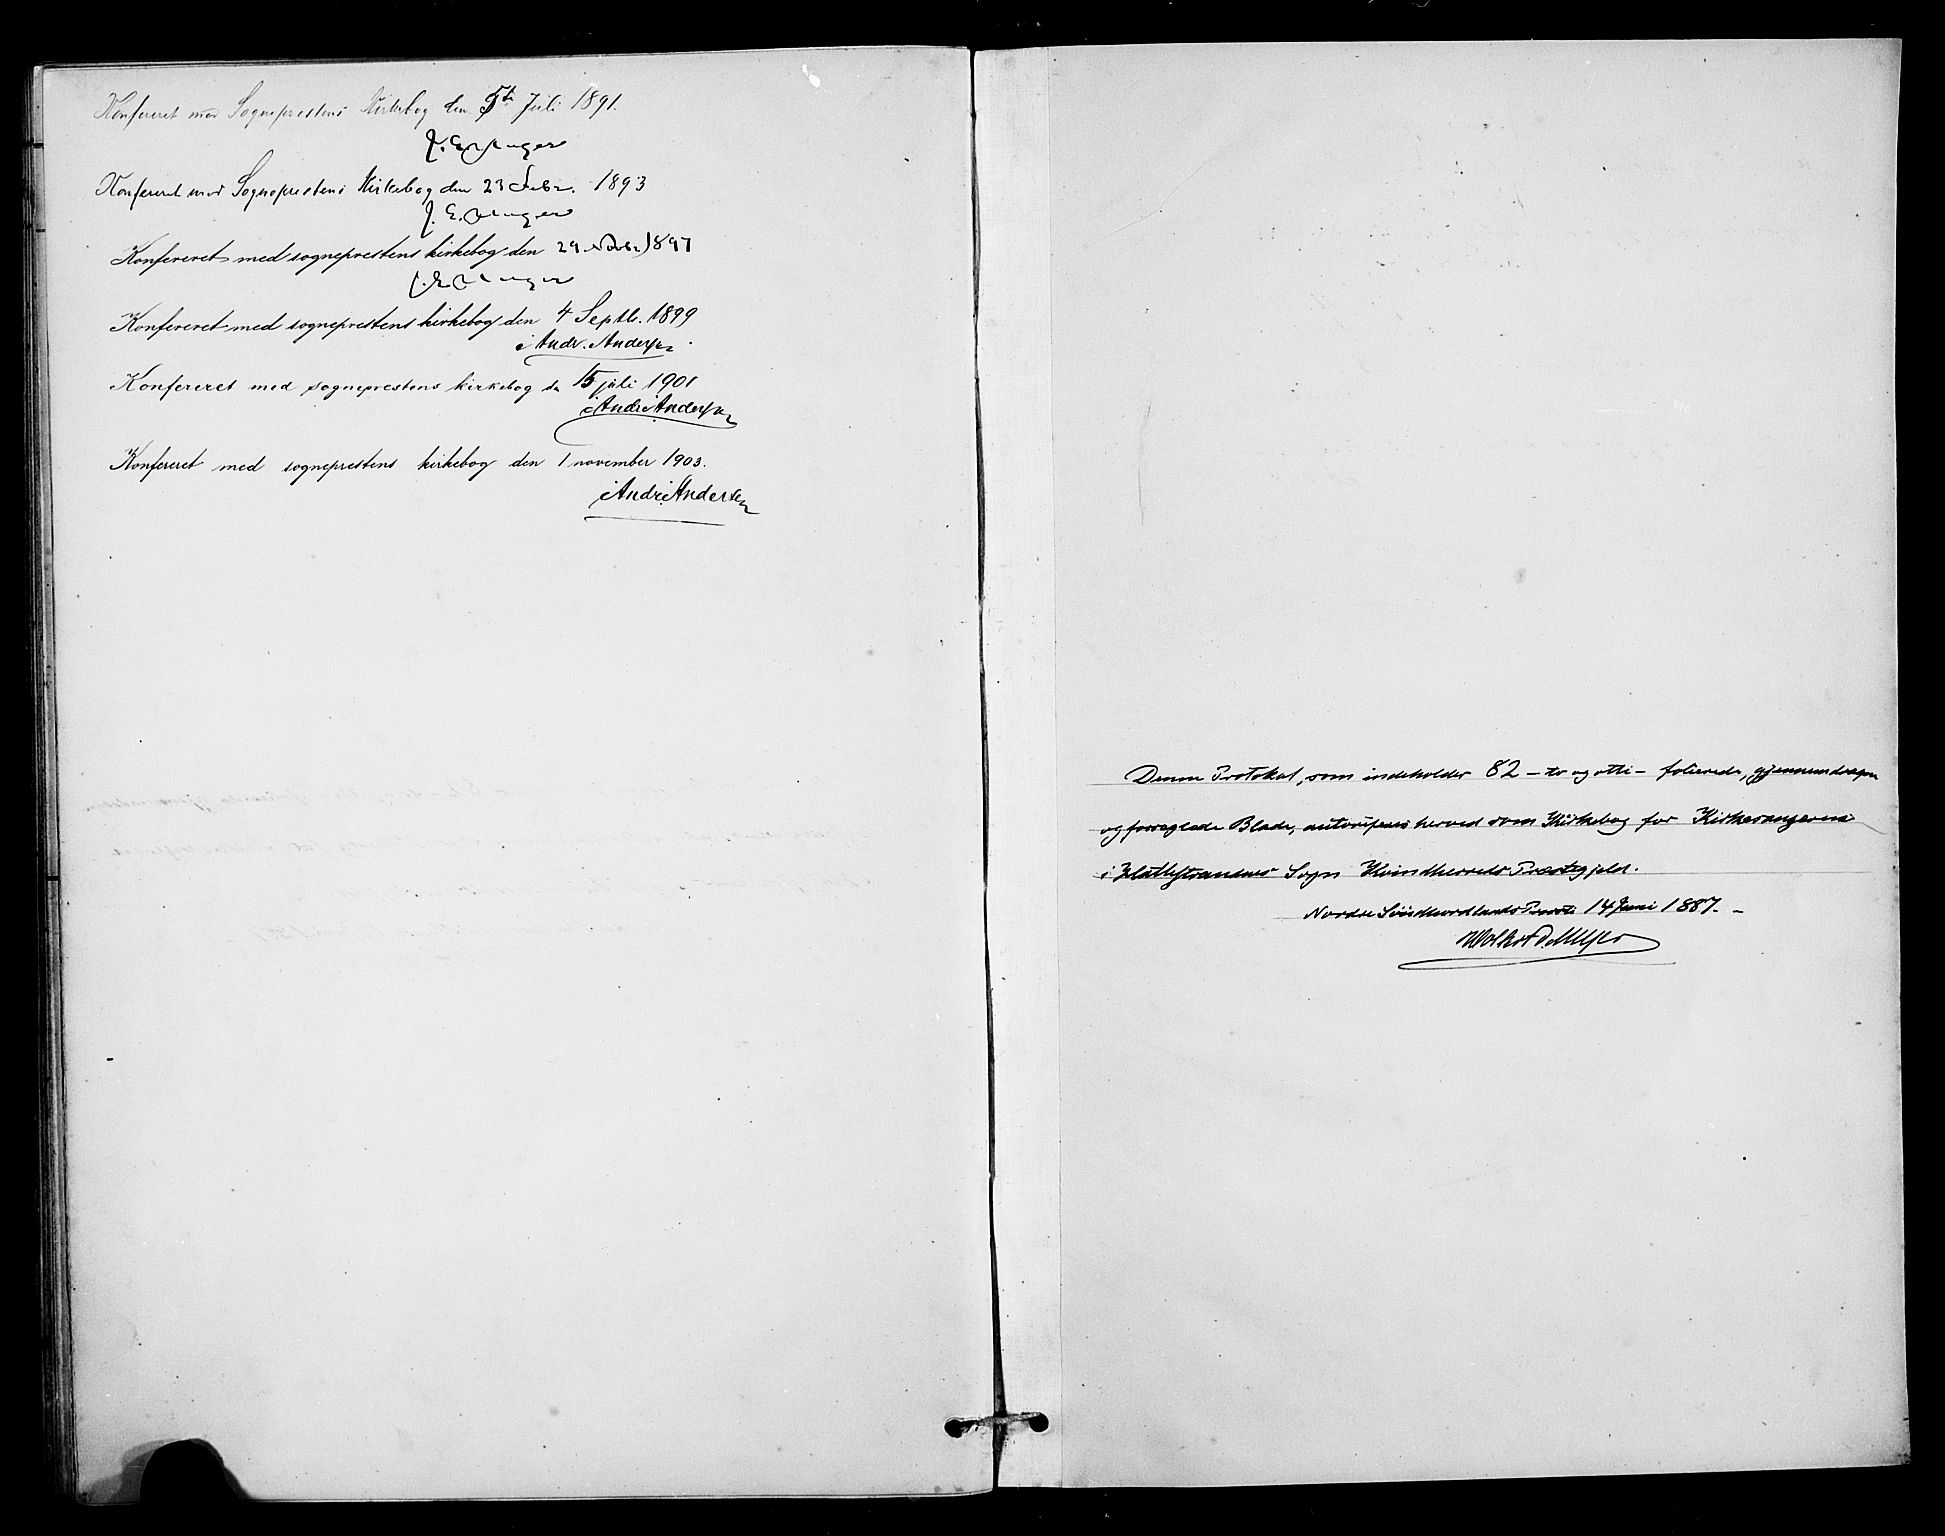 Konfereret med Sogneprestens Kirkebog den 5te Juli 1891.
J. E. Unger
Konfereret med Sogneprestens Kirkebog den 23 Febr. 1893
J. E. Unger
Konfereret med sogneprestens kirkebog den 29 Novbr 1897
J. E. Unger
Konfereret med sogneprestens kirkebog den 4 Septb. 1899
Andr. Andersen
Konfereret med sogneprestens kirkebog d. 15 juli 1901
Andr. Andersen
Konfereret med sogneprestens kirkebog den 1 november 1903.
Andr. Andersen
Denne Protokol, som indeholder 82 – to og otti – folierede, gjennemdragne
og forseglede Blade, autoriseres herved som Kirkebog for Kirkesangeren
i Sogn Kvindherreds Præstegjeld.
Nordre Søndhordlands Provsti 14 Juni 1887. –